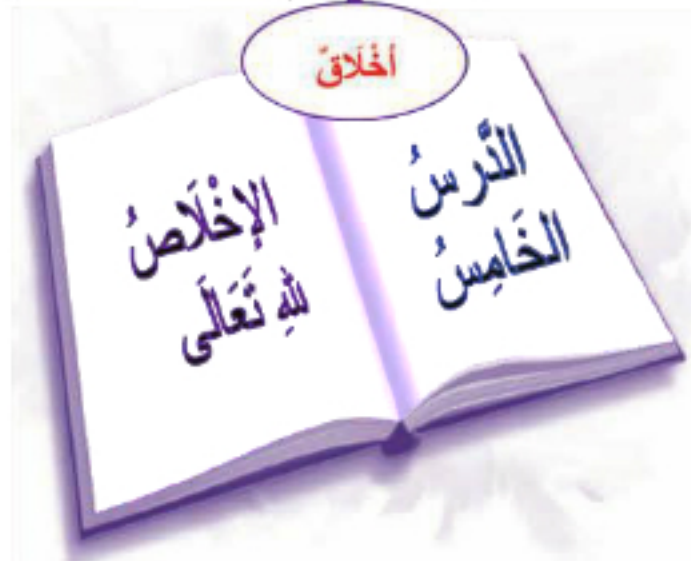 أَخْلَاقٌ
الدَّرسُ
الخَامِسُ
الإِخْلَاصُ
لِلهِ تَعَالَى